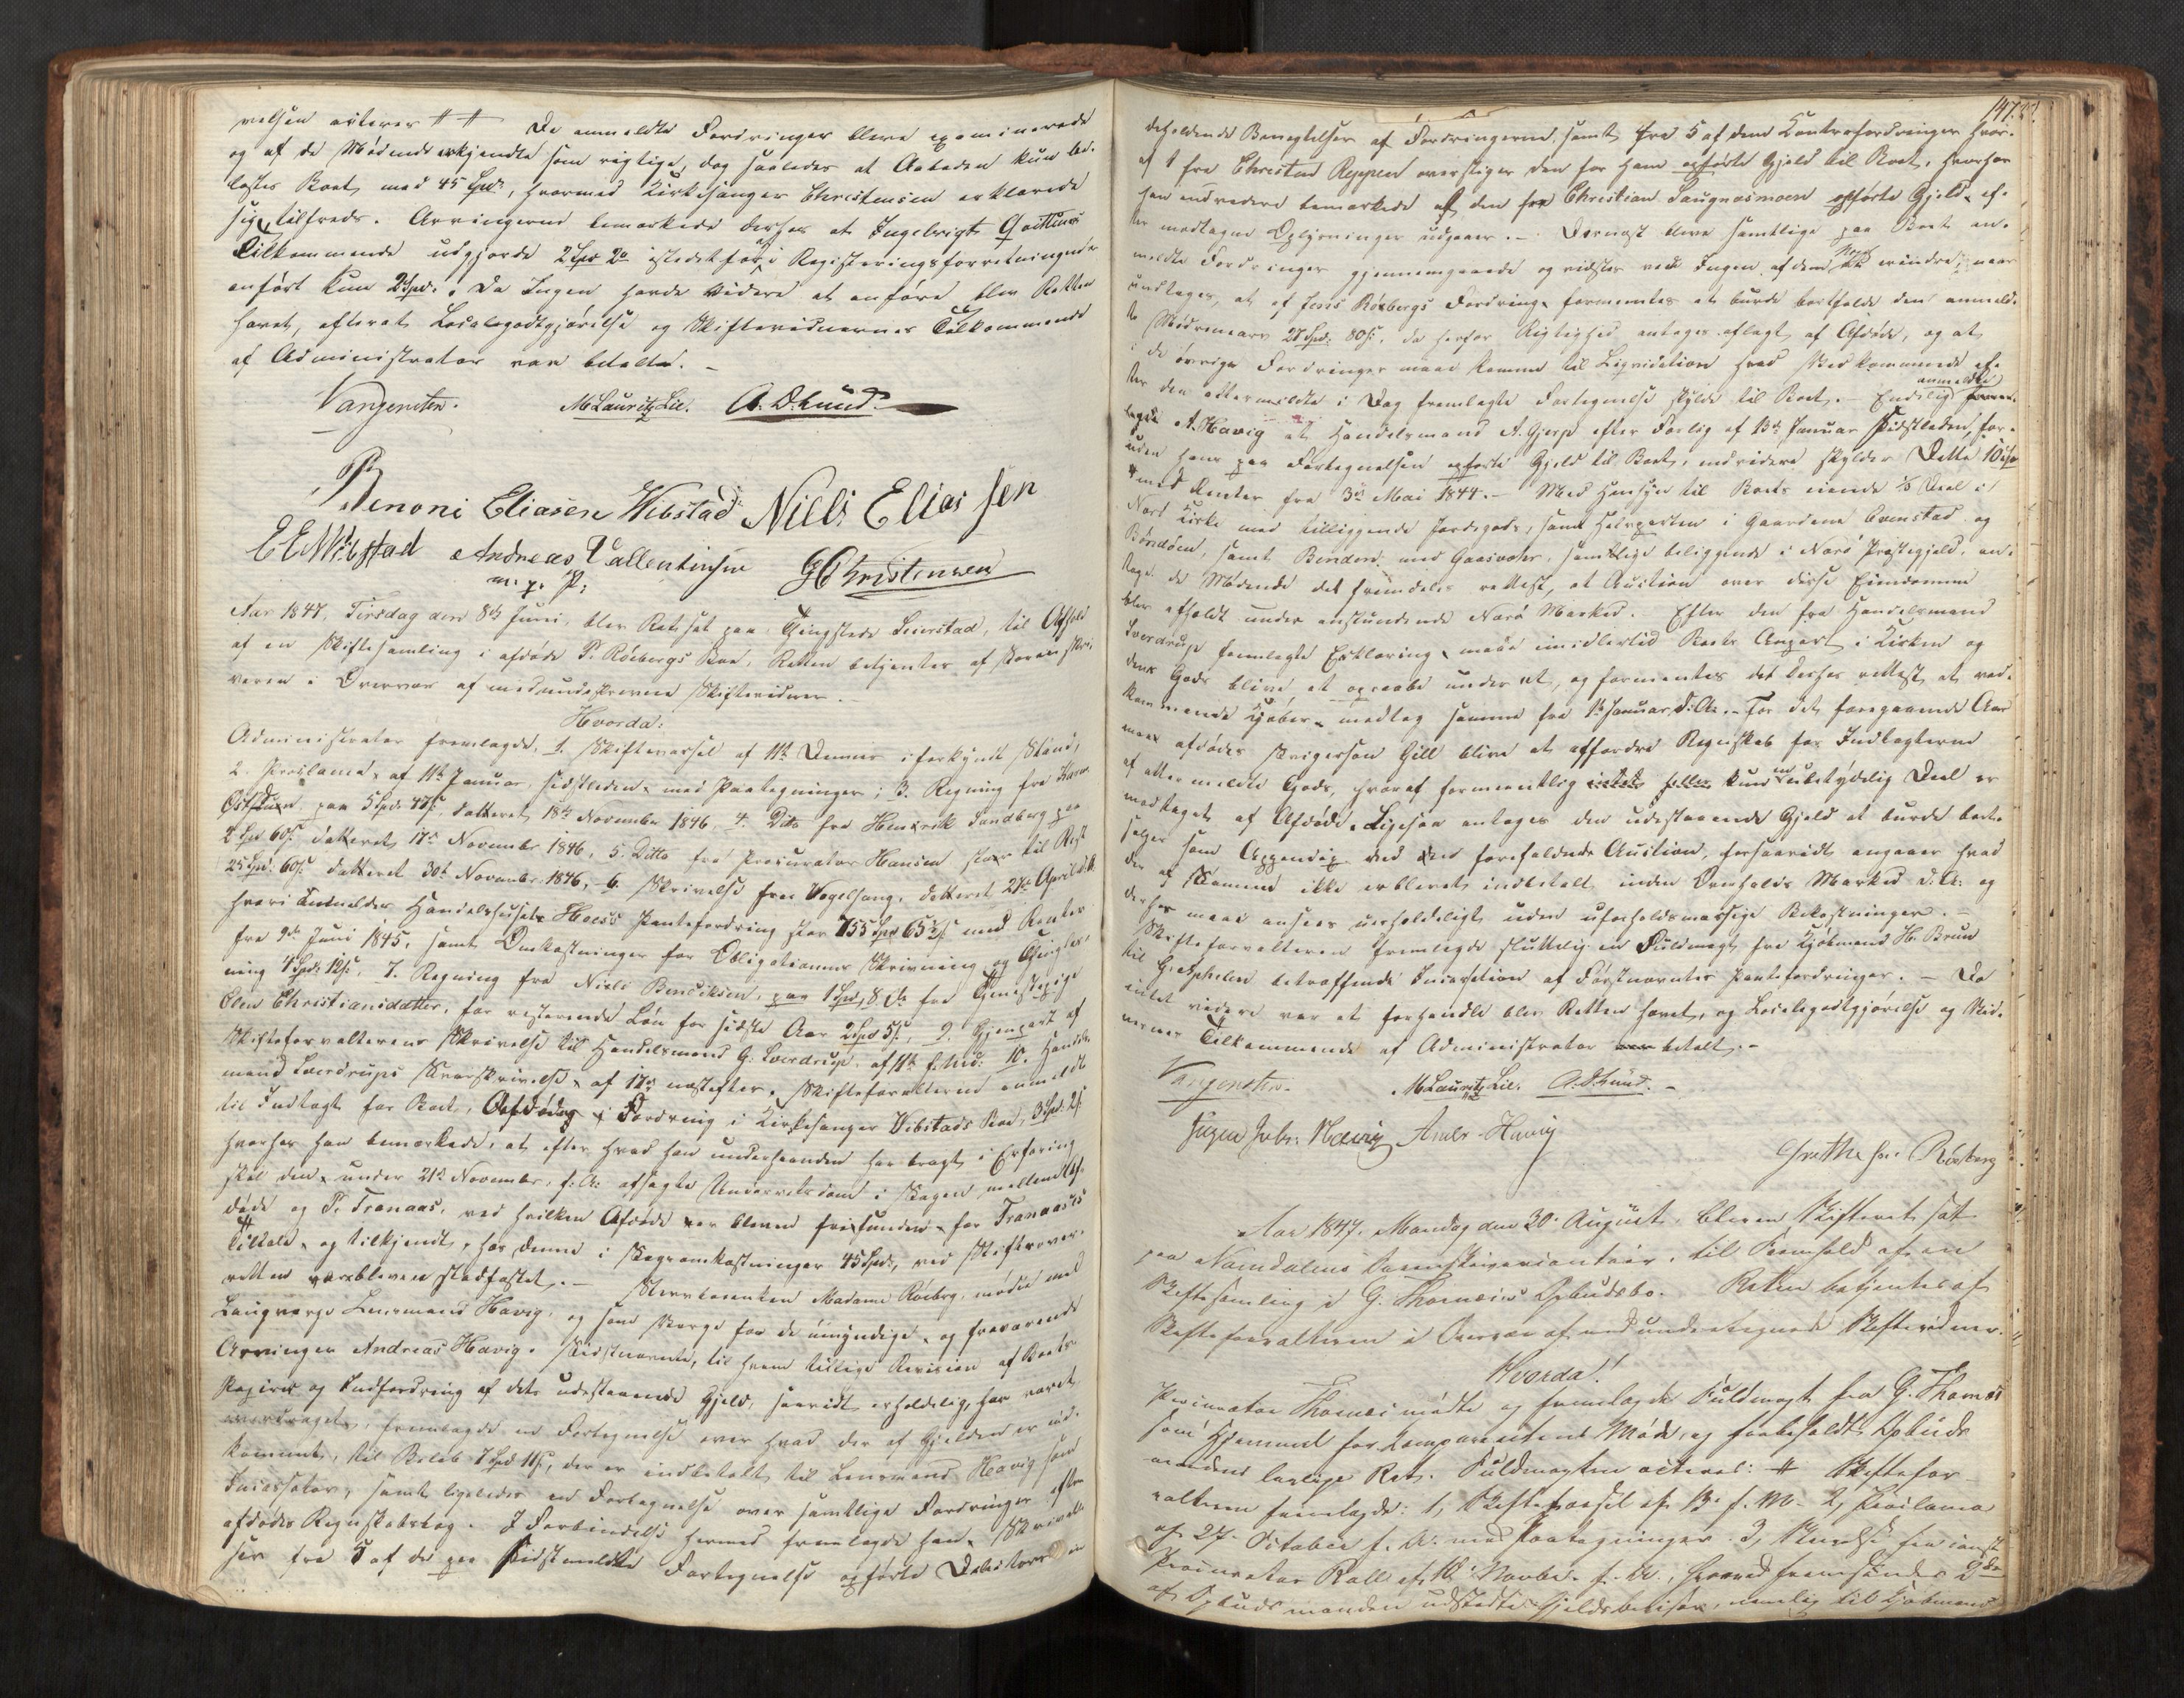 velsen acteres ## De anmeldte Fordringer bleve examinerede
og af de Mødende erkjendte som rigtige, dog saaledes at Aaboden kun be-
lastes Boet med 45 Spd:, hvormed Kirkesanger Christensen erklærede
sig tilfreds. Arvingerne bemærkede derhos at Ingebrigt
Tilkommende udgjorde 2 Spd istedetfor i Registeringsforretningen
anført kun 2 Spd:. Da Ingen havde videre at anføre blev Retten
hævet, efterat Localegodtgjørelse og Skiftevidnernes Tilkommende
af Administrator var betalte. –
Vangensten. M Lauritz Lie. A. D. Lund.
Benoni Eliasen Wibstad Niels Elias sen
E E Wibstad Andreas Vallentinsen G Christensen
m. p. P:
Aar 1847, Tirsdag den 8de Juni, blev Ret sat paa Thingstedet, til Afhold
af en Skiftesamling i afdøde P. Røebergs Bo. Retten betjentes af Sorenskri-
veren i Overvær af medunderskrevne Skiftevidner. –
Hvorda:
Administrator fremlagde, 1. Skiftevarsel af 11te Dennes i forkyndt Stand,
2. Proclama af 11te Januar sidstleden med Paategninger; 3. Regning fra
paa 5 Spd 47 s, datteret 18de November 1846. 4. Dito fra Henrik Sandberg paa
2 Spd 60 s datteret 17de November 1846, 5. Ditto fra Procurator Hansen stor til Rest
25 Spd: 60 s datteret 30te November 1846, – 6. Skrivelse fra Vogelsang, datteret 27de April d. A.
hvori Anmelder Handelshuset Pantefordring stor 755 Spd 65 s med Renter
fra 9de Juni 1845, samt Omkostninger for Obligationens Skrivning og Thinglæs-
ning 4 Spd: 12 s. 7. Regning fra Niels Bendiksen, paa 1 Spd, 8. Do fra Tjenestepige
Elen Christiansdatter, for resterende Løn for sidste Aar 2 Spd 5 s, 9. Gjenpart af
Skifteforvalterens Skrivelse til Handelsmand G. Sverdrup, af 11te f. Md: 10. Handels-
mand Sverdrups Svarskrivelse af 17de næstefter. Skifteforvalteren anmeldte
til Indtægt for Boet, Afdødes Fordring i Kirkesanger Vibstads Bo, 3 Spd: 2 s
hvorhos han bemærkede, at efter hvad han underhaanden har bragt i Erfaring
skal den under 21de November f. A: afsagte Underretsdom i Sagen mellem Af-
døde og P. Tranaas, ved hvilken Afdøde var bleven frifunden for Tranaas's
Tiltale og tilkjendt hos denne i Sagsomkostninger 45 Spd, ved Stiftsover-
retten være bleven stadfæstet. – Stervboenken Madame Røeberg, mødte med
Laugværge Lensmand Havig, og som Værge for de umyndige og fraværende
Arvinger Andreas Havig. Sidstnævnte, til hvem tillige Revision af Boets
Papirer og Indfordring af dets udestaaende Gjeld, saavidt erholdelig, har været
overdraget, fremlagde en Fortegnelse over hvad der af Gjelden er ind-
kommet, til Beløb 7 Spd 11 s, der er indbetalt til Lensmand Havig som
Incassator, samt ligeledes en Fortegnelse over samtlige Fordringer efter
afdødes Regnskabsbog. I Forbindelse hermed fremlagde han Skrivel-
ser fra 5 af de paa sidstmeldte Fortegnelse opførte Debitorer in
147.
deholdende Benegtelser af Fordringerne, samt fra 5 af dem Contrafordringer hvor-
af 1 fra Christen Reppen overstiger den for ham opførte Gjeld til Boet, hvorhos
han endvidere bemærkede at den for Christian Saugnæsmoen opførte Gjeld ef-
ter modtagne Oplysninger udgaaer. – Dernæst bleve samtlige paa Boet an-
meldte Fordringer gjennemgaaede og vidstes ved Ingen af dem Noget at erindre, naar
undtages, at af Jens Røebergs Fordring formentes at burde bortfalde den anmeld-
te Mødrenearv 28 Spd: 80 s, da herfor Rigtighed antages aflagt af Afdøde, og at
i de øvrige Fordringer maae komme til Liqvidation hvad Vedkommende ef-
ter den ottermeldte i Dag fremlagte Fortegnelse skylde til Boet. – Endelig anmeldte
A. Havig at Handelsmand A. Gjerp efter Forlig af 13de Januar sidstleden, for-
uden hans paa Fortegnelsen opførte Gjeld til Boet, endvidere skylder Dette 10 Spd
med Renter fra 3de Mai 1844. – Med Hensyn til Boets eiende 1/3 Deel i
Nærø Kirke med tilliggende Jordegods, samt Heirparten i Gaardene Evenstad og
Bøndøen, samt Benderø med Gaasvær, samtlige beliggende i Nærø Præstegjeld, an-
saae de Mødende det fremdeles rettest, at Auction over disse Eiendomme
blev afholdt under anstundende Nærø Marked. Efter den fra Handelsmand
Sverdrup fremlagte Erklæring maae imidlertid Boets Anpart i Kirken og
dens Gods blive at opraabe under et, og formentes det derhos rettest at ved-
kommende Kjøber modtog samme fra 1te Januar d: A. – For det foregaaende Aar
maae afdødes Svigersøn Gill blive at affordre Regnskab for Indtægterne
af ottermeldte Gods, hvoraf formeentlig intet eller kun en ubetydelig Deel er
modtaget af Afdøde. Ligesaa antages den udestaaende Gjeld at burde bort-
sælges som Appendix ved den forefaldende Auction, forsaavidt angaaer hvad
der af Samme ikke er blevet indbetalt inden Overhalds Marked d. A: og
derfor maae ansees uerholdeligt uden uforholdsmæssige Bekostninger. –
Skifteforvalteren fremlagde sluttelig en Fuldmagt fra Kjøbmand H. Brun
til G. Asphelen betræffende Incassation af Førstnævntes Pantefordringer. – Da
intet videre var at forhandle blev Retten hævet, og Localegodtgjørelse og Vid-
nernes Tilkommende af Administrator betalt. –
Vangensten. M Lauritz Lie. A. D. Lund. –
Havig Andr. Havig
Grethe Røeberg
Aar 1847. Mandag den 30. August, blev en Skifteret sat
paa Namdalens Sorenskrivercontoir, til Fremhold af en
Skiftesamling i G. Thomesens Opbudsbo. Retten betjentes af
Skifteforvalteren i Overvær af medundertegnede Skiftevidner.
Hvorda!
Procurator Thomes mødte og fremlagde Fuldmagt fra G. Thomes
som Hjemmel for Comparentens Møde, og forbeholdt Opbuds-
mandens lovlige Ret. Fuldmagten acteres: # Skiftefor-
valteren fremlagde: 1, Skiftevarsel af 13. f. M. 2, Proclama
af 27. October f. A. med Paategninger. 3, Skrivelse fra const.
Procurator Roll af 10. Novbr. f. A., hvorved fremsendes 2de
af Opbudsmanden udstedte Gjeldsbeviser, nemlig til Kjøbmand